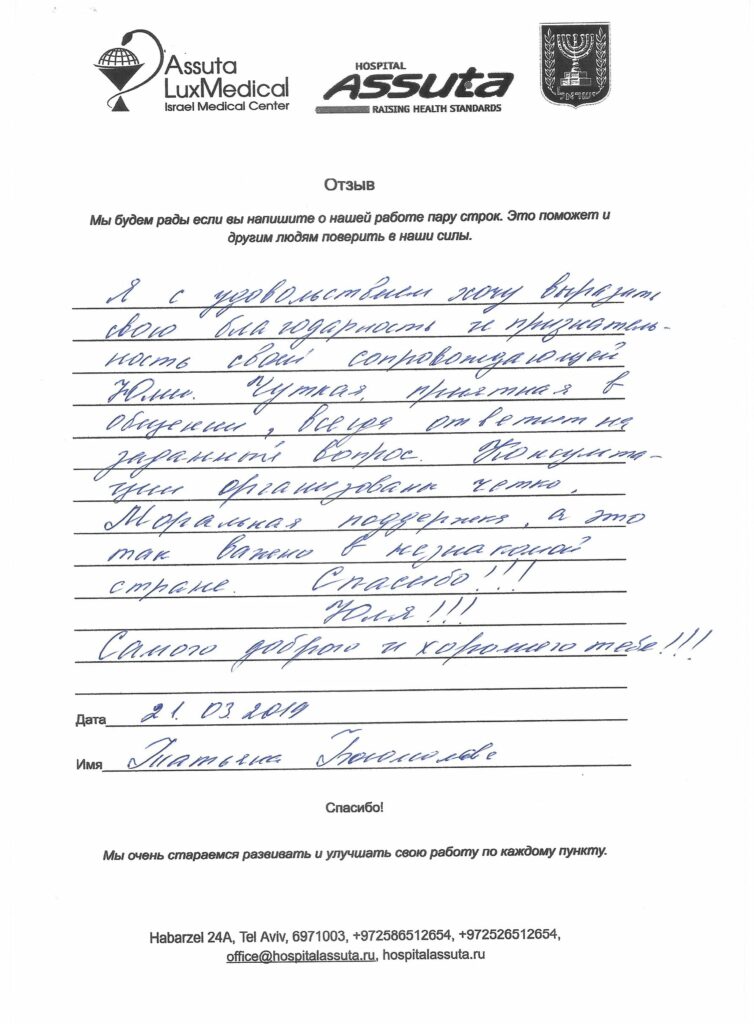 Assuta
LuxMedical
Israel Medical Center
HOSPITAL
Assuta
RAISING HEALTH STANDARDS
ישראל
Отзыв
Мы будем рады если вы напишите о нашей работе пару строк. Это поможет и
другим людям поверить в наши силы.
Я с удовольствием хочу выразить
свою благодарность и признатель-
ность своей сопровождающей
Юлии. Чуткая, приятная в
общении, всегда ответит на
заданный вопрос. Консульта-
ции организованы четко.
Моральная поддержка, а это
так важно в незнакомой
стране. Спасибо!!!
Юля!!!
Самого доброго и хорошего тебе!!!
Дата 21.03.2019
Имя Татьяна Богомолова
Спасибо!
Мы очень стараемся развивать и улучшать свою работу по каждому пункту.
Habarzel 24A, Tel Aviv, 6971003, +972586512654, +972526512654,
office@hospitalassuta.ru, hospitalassuta.ru